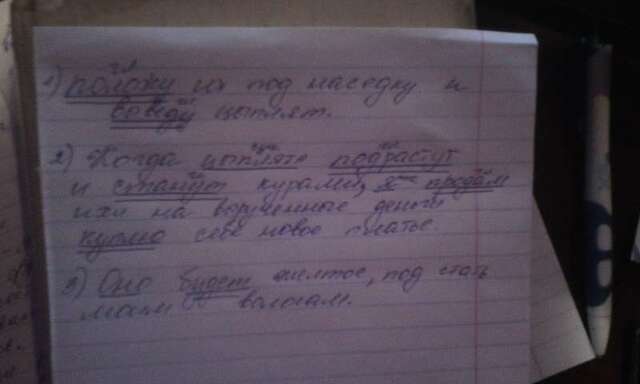 1) положу их под наседку и
выведу цыплят.
2) Когда цыплята подрастут
и станут курами, я продам
их и на вырученные деньги
куплю себе новое платье.
3) Оно будет желтое, под стать
моим волосам.